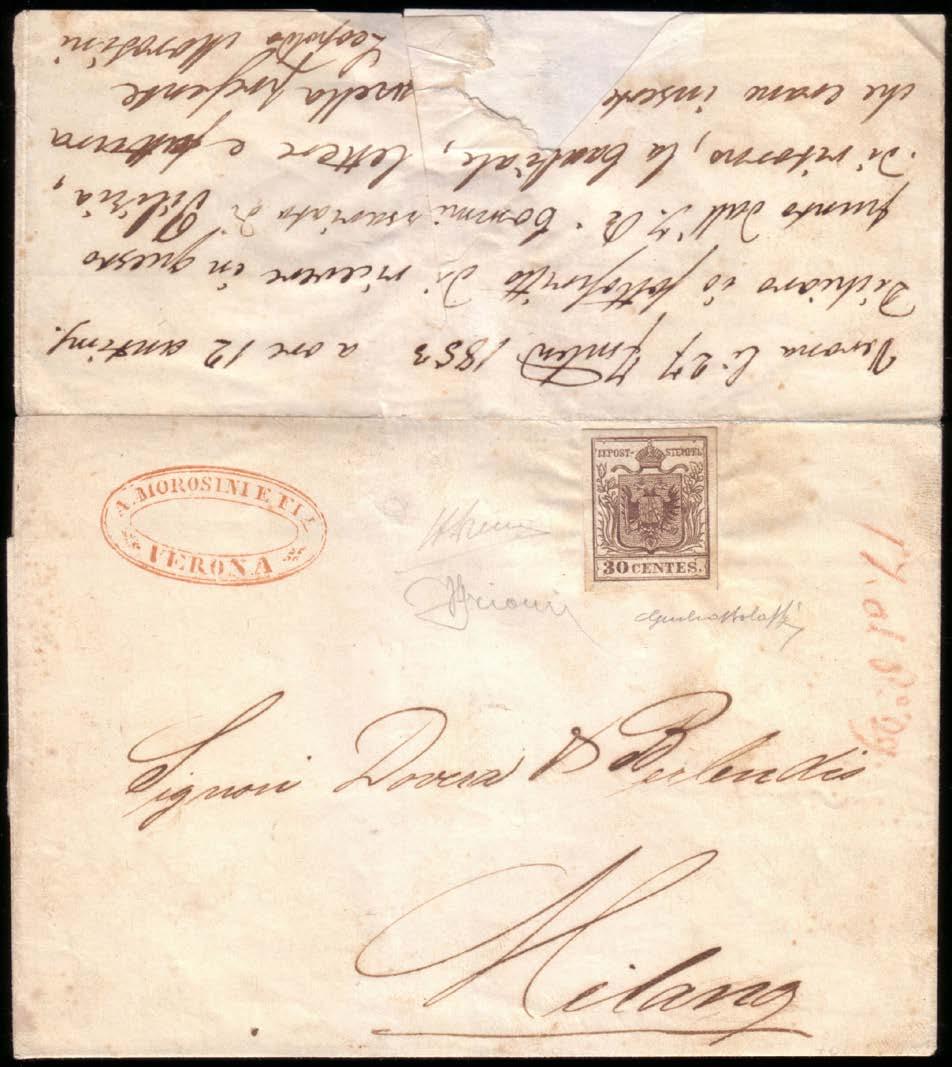 Verona li 27 7mbre 1853 a ore 12 antimᵉ.
Dichiaro io sottoscritto di ricevere in questo
punto dall' I. R. Commissariato di Polizia,
di ritorno, la lettere e fattura
che erano inserte nella presente
Leopoldo Morosini
A. MOROSINI E FI
VERONA
KKPOST-STEMPEL
30 CENTES.
Signori Dovera & Berlendis
Milano